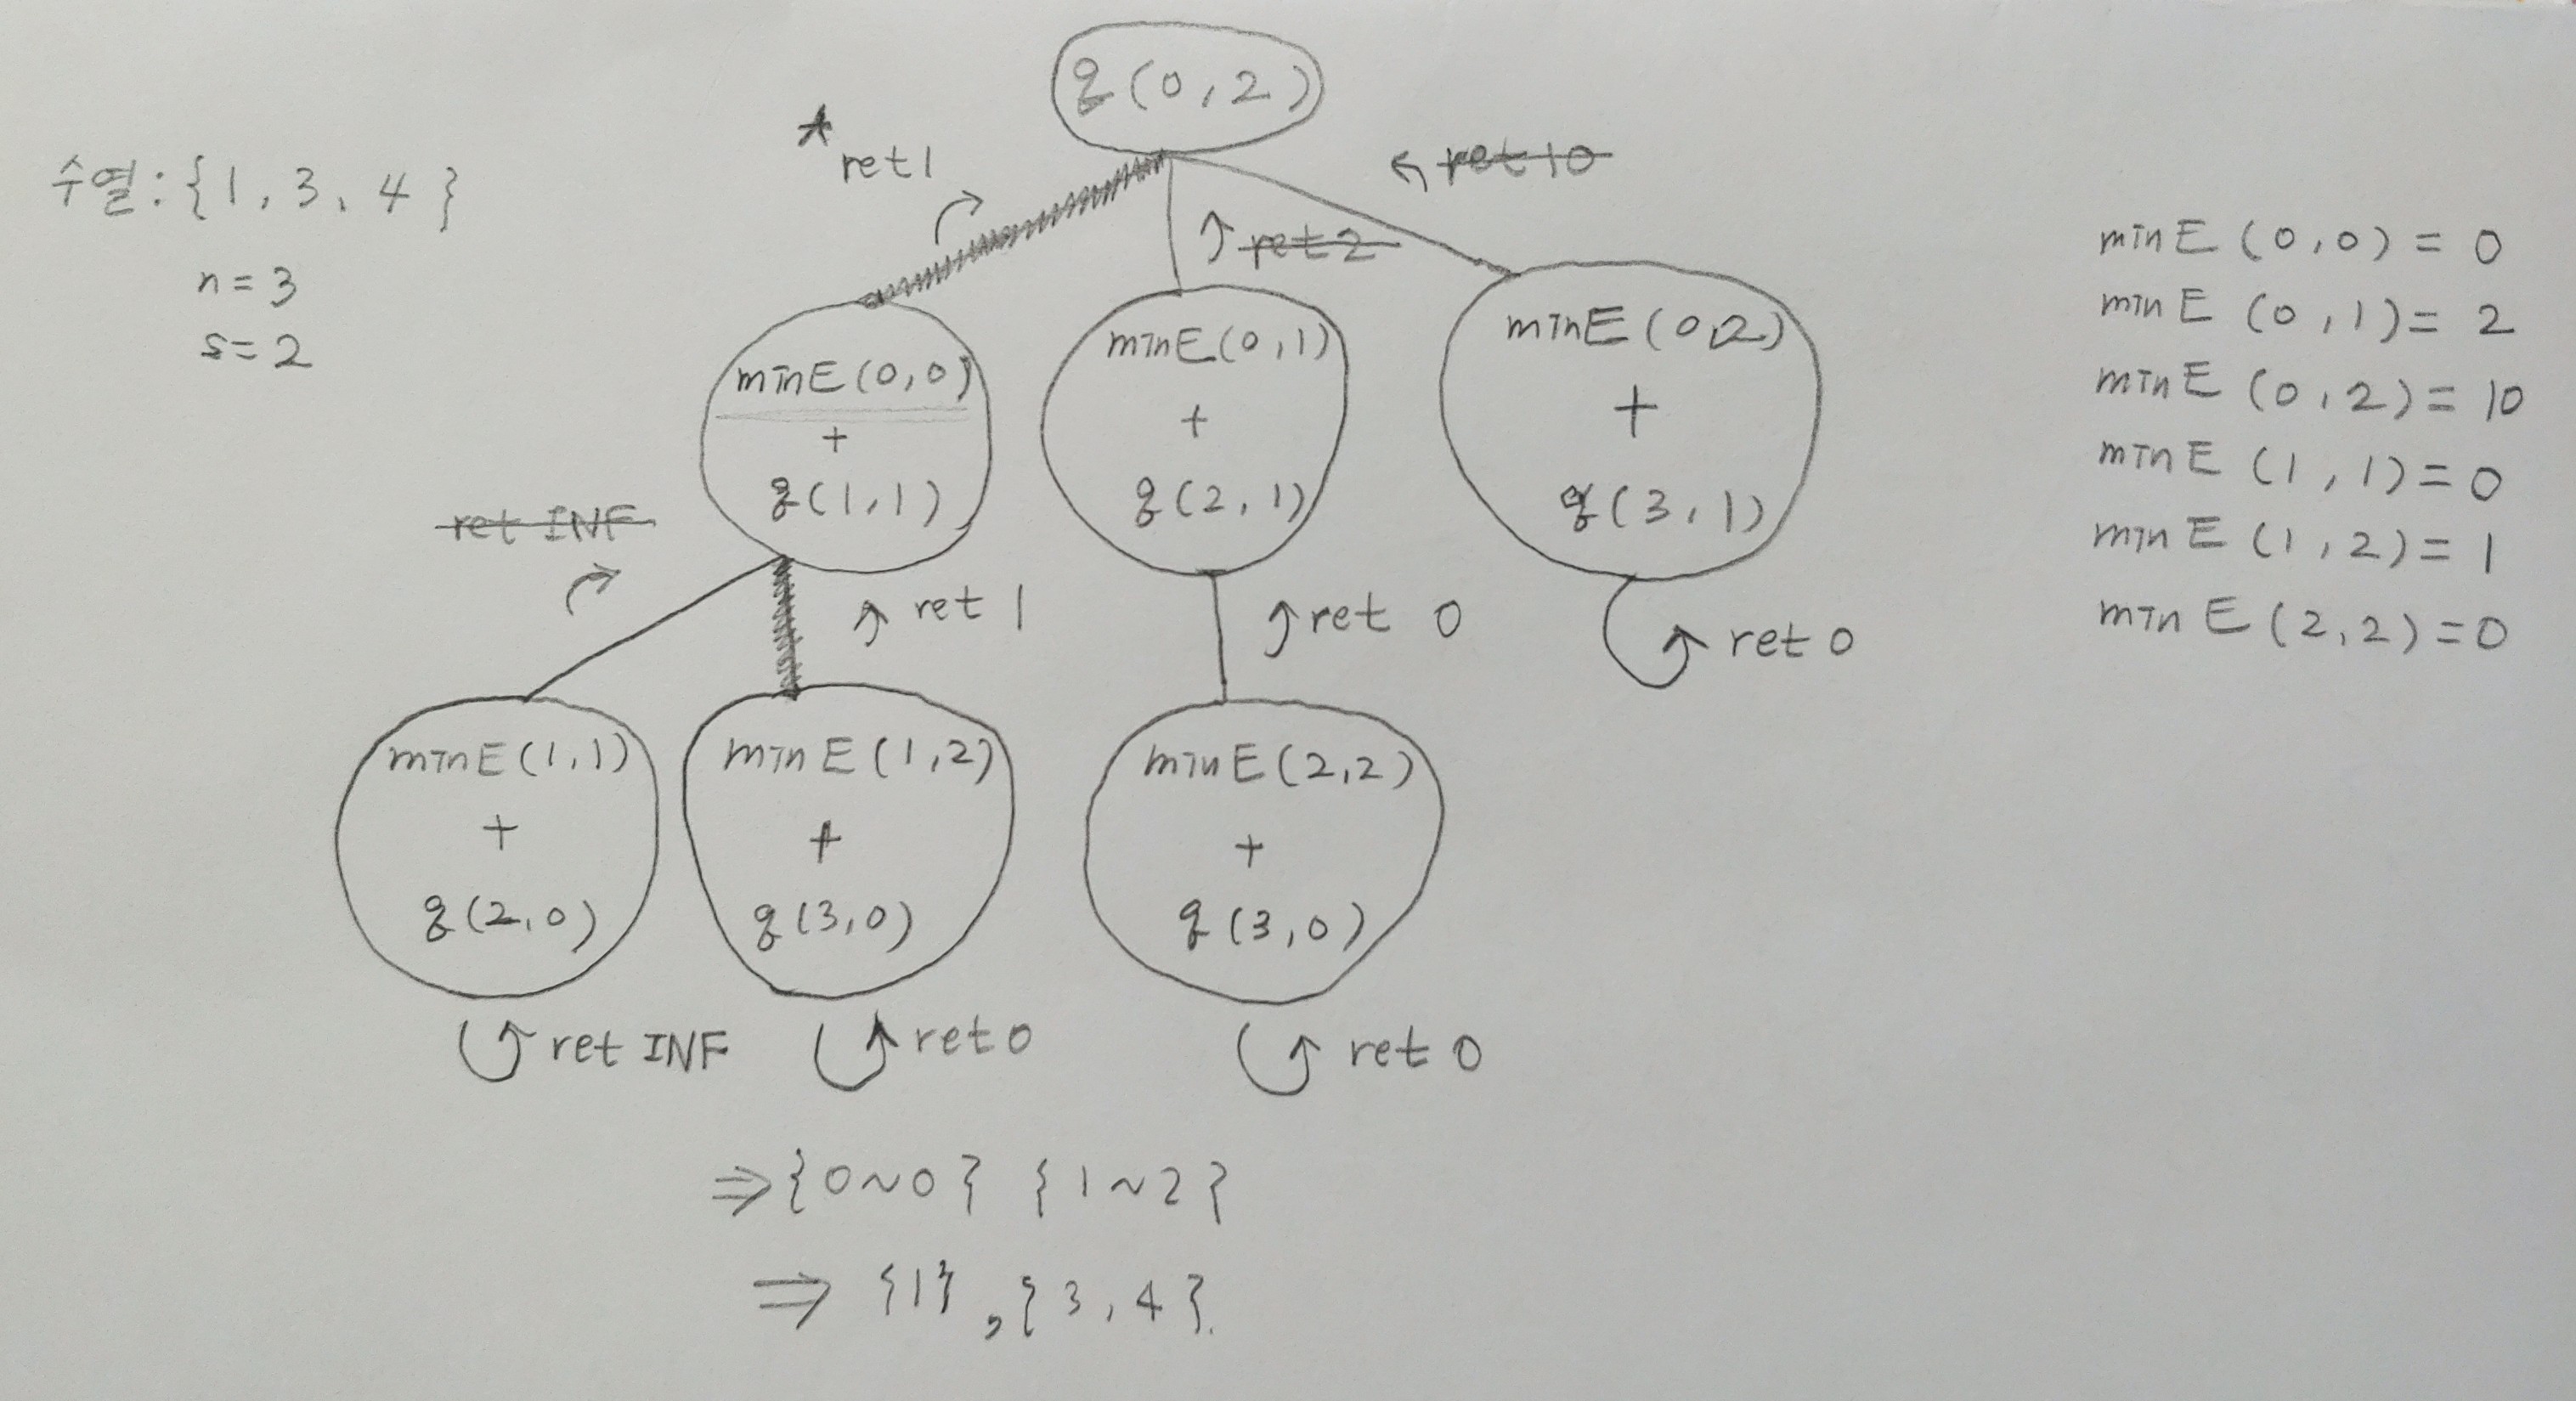 수열:{1, 3, 4}
n=3
s=2
q(0,2)
★
ret 1
ret 2
ret 10
minE(0,0)
+
q(1,1)
minE(0,1)
+
q(2,1)
minE(0,2)
+
q(3,1)
ret INF
ret 1
ret 0
ret 0
minE(1,1)
+
q(2,0)
minE(1,2)
+
q(3,0)
minE(2,2)
+
q(3,0)
ret INF
ret 0
ret 0
minE(0,0)=0
minE(0,1)=2
minE(0,2)=10
minE(1,1)=0
minE(1,2)=1
minE(2,2)=0
⇒{0~0} {1~2}
⇒ {1}, {3, 4}.